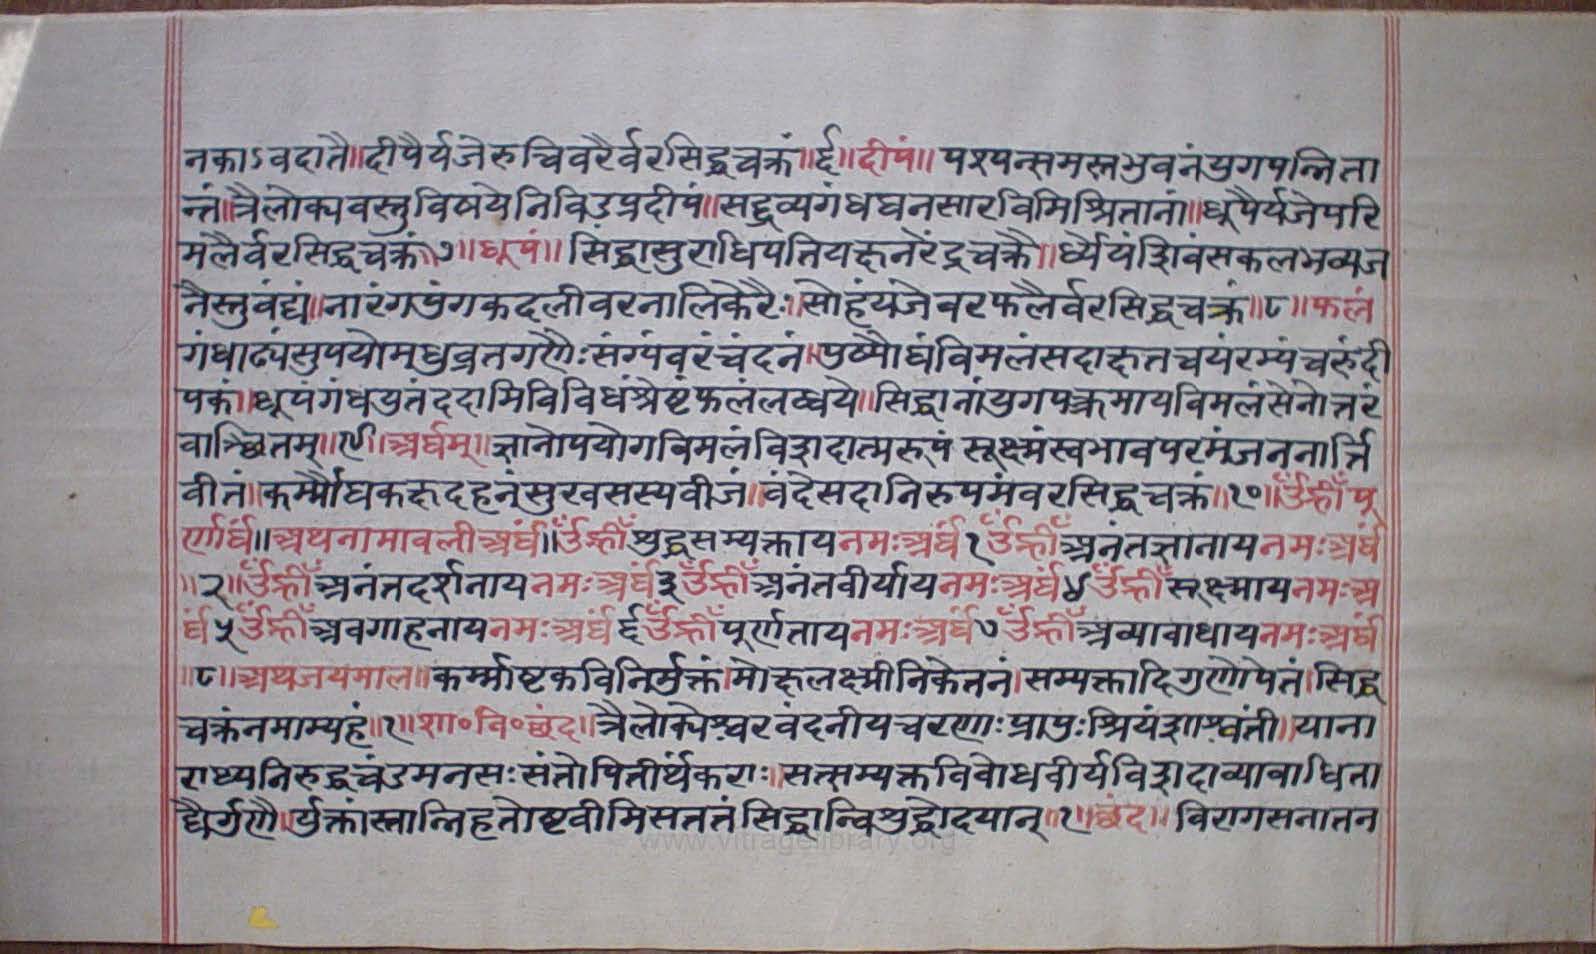 नकाऽवदातै॥दीपैर्यजेरुचिवरैर्वरसिद्धचक्रं॥६॥दीपं॥ पश्यन्समस्तभुवनंयुगपन्निता
न्तं॥त्रैलोक्यवस्तुविषयेनिविडप्रदीपं॥सद्द्रव्यगंधघनसारविमिश्रितानां॥धूपैर्यजेपरि
मलैर्वरसिद्धचक्रं॥७॥धूपं॥ सिद्धासुराधिपतियक्षनरेंद्रचक्रै॥र्ध्येयंशिवंसकलभव्यज
नैस्तुवंद्यं॥नारंगपुंगकदलीवरनालिकेरैः॥सोहंयजेवरफलैर्वरसिद्धचक्रं॥८॥फलं
गंधाढ्यंसुपयोमधुव्रतगणैःसंग्यंवरंचंदनं॥पुष्पौघंविमलंसदाक्षतचयंरम्यंचरुंदी
पकं॥धूपंगंधयुतंददामिविविधंश्रेष्टंफलंलब्धये॥सिद्धानांयुगपत्क्रमायविमलंसेनोत्तरं
वाञ्छितम्॥९॥अर्घम्॥ज्ञानोपयोगविमलंविशदात्मरूपं सूक्ष्मंस्वभावपरमंजननार्त्ति
वीतं॥कर्म्मौघकक्षदहनंसुखसस्यवीजं॥वंदेसदानिरुपमंवरसिद्धचक्रं॥१०॥ॐह्रीँपू
र्णार्घं॥अथनामावलीअर्घं॥ॐह्रीँशुद्धसम्यक्तायनमःअर्घं१ॐह्रीँअनंतज्ञानायनमःअर्घं
॥२॥ॐह्रीँअनंतदर्शनायनमःअर्घं३ॐह्रीँअनंतवीर्यायनमःअर्घं४ॐह्रीँसूक्ष्मायनमःअ
र्घं५ॐह्रीँअवगाहनायनमःअर्घं६ॐह्रीँपूर्णतायनमःअर्घं७ॐह्रीँअव्यावाधायनमःअर्घं
॥८॥अथजयमाल॥कर्म्माष्टकविनिर्मुक्तं।मोक्षलक्ष्मीनिकेतनं।सम्यक्तादिगुणोपेतं।सिद्ध
चक्रंनमाम्यहं॥१॥शा०वि०छंद॥त्रैलोक्येश्वरवंदनीयचरणाःप्रापुःश्रियंशाश्वंती॥याना
राध्यनिरुद्धचंडमनसःसंतोपितीर्थंकराः॥सत्सम्यक्तविवोधवीर्यविशदाव्यावाधिता
द्यैर्गुणै॥र्युक्तांस्तान्निहतोष्टवीमिसततंसिद्धान्विशुद्धोदयान्॥१॥छंद॥ विरागसनातन
www.vitragelibrary.org